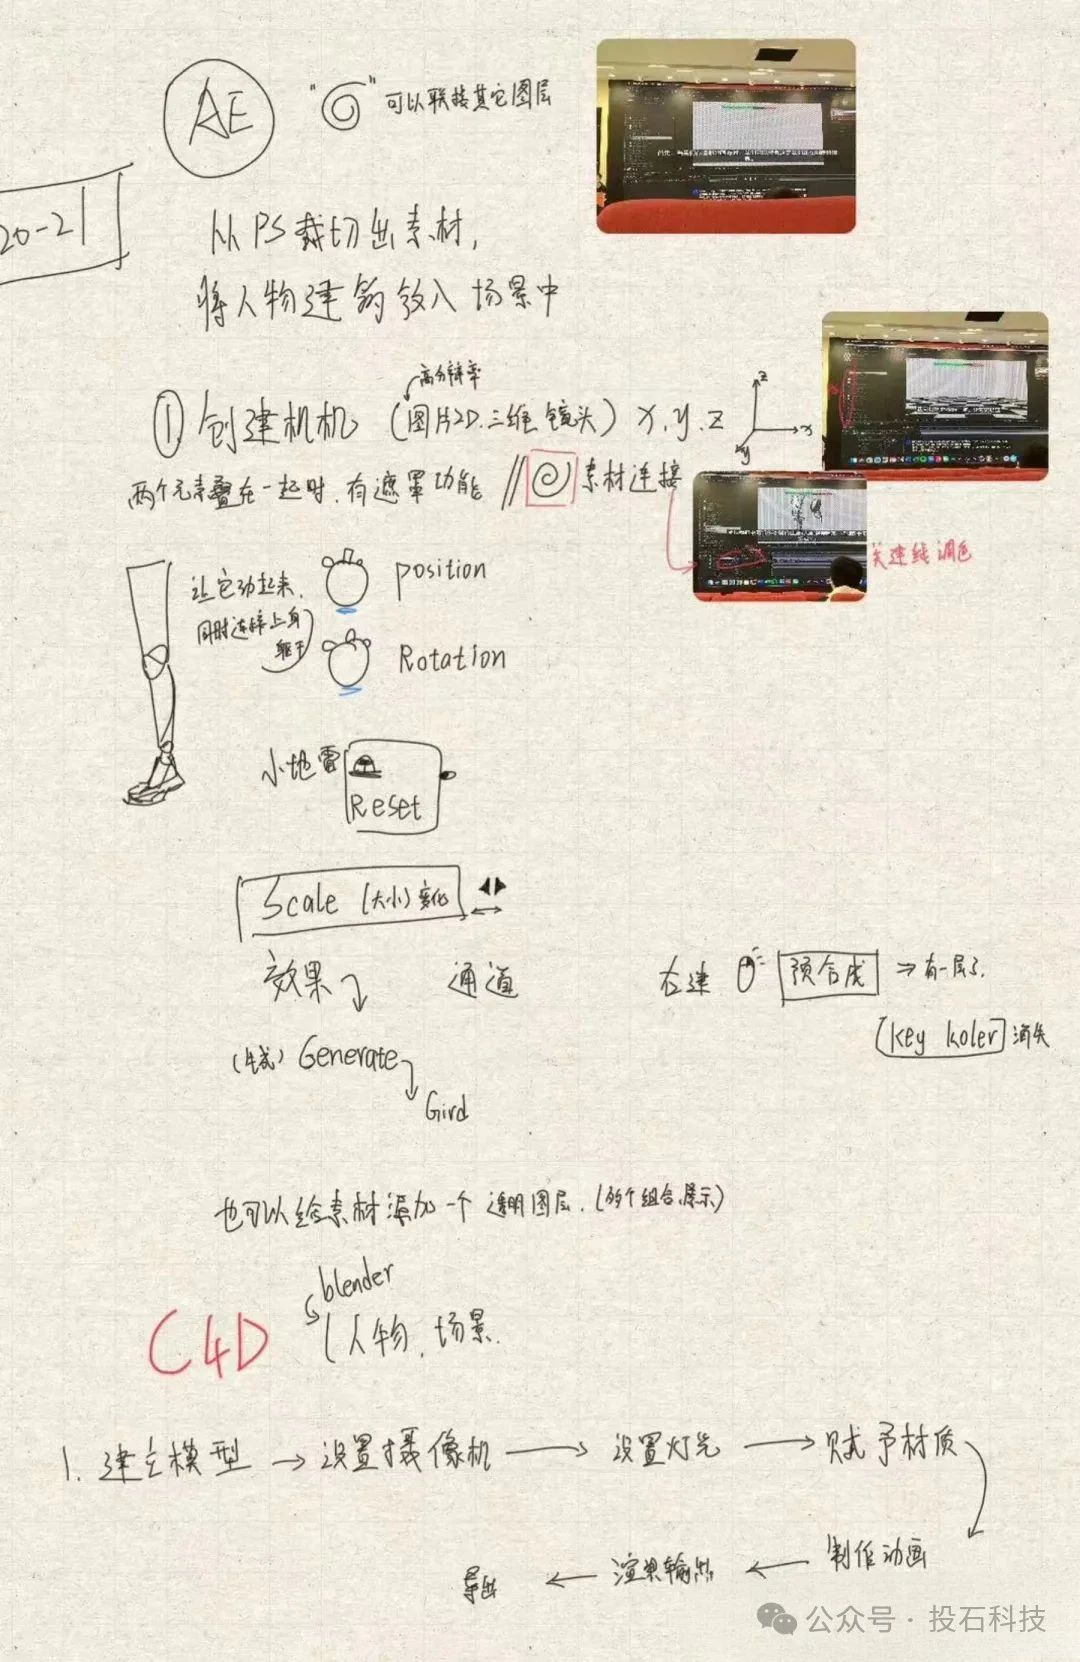 AE
"可以联接其它图层
20-21
从PS裁切出素材,
将人物建筑放入场景中
高分辨率
① 创建机机 (图片2D.三维镜头) x.y.z
z
x
y
两个元素叠在一起时.有遮罩功能 // 素材连接
关建线调色
让它动起来.
同时连接上身
躯干
position
Rotation
小地雷
Reset
Scale (大小)变化
效果 通道
右建 预合成 ⇒ 有一层了.
[key koler] 消失
(生成) Generate
Gird
也可以给素材添加一个透明图层.(多个组合.展示)
blender
C4D
(人物.场景.
1. 建立模型 → 设置摄像机 → 设置灯光 → 赋予材质
制作动画
导出 ← 渲染输出 ←
公众号 · 投石科技